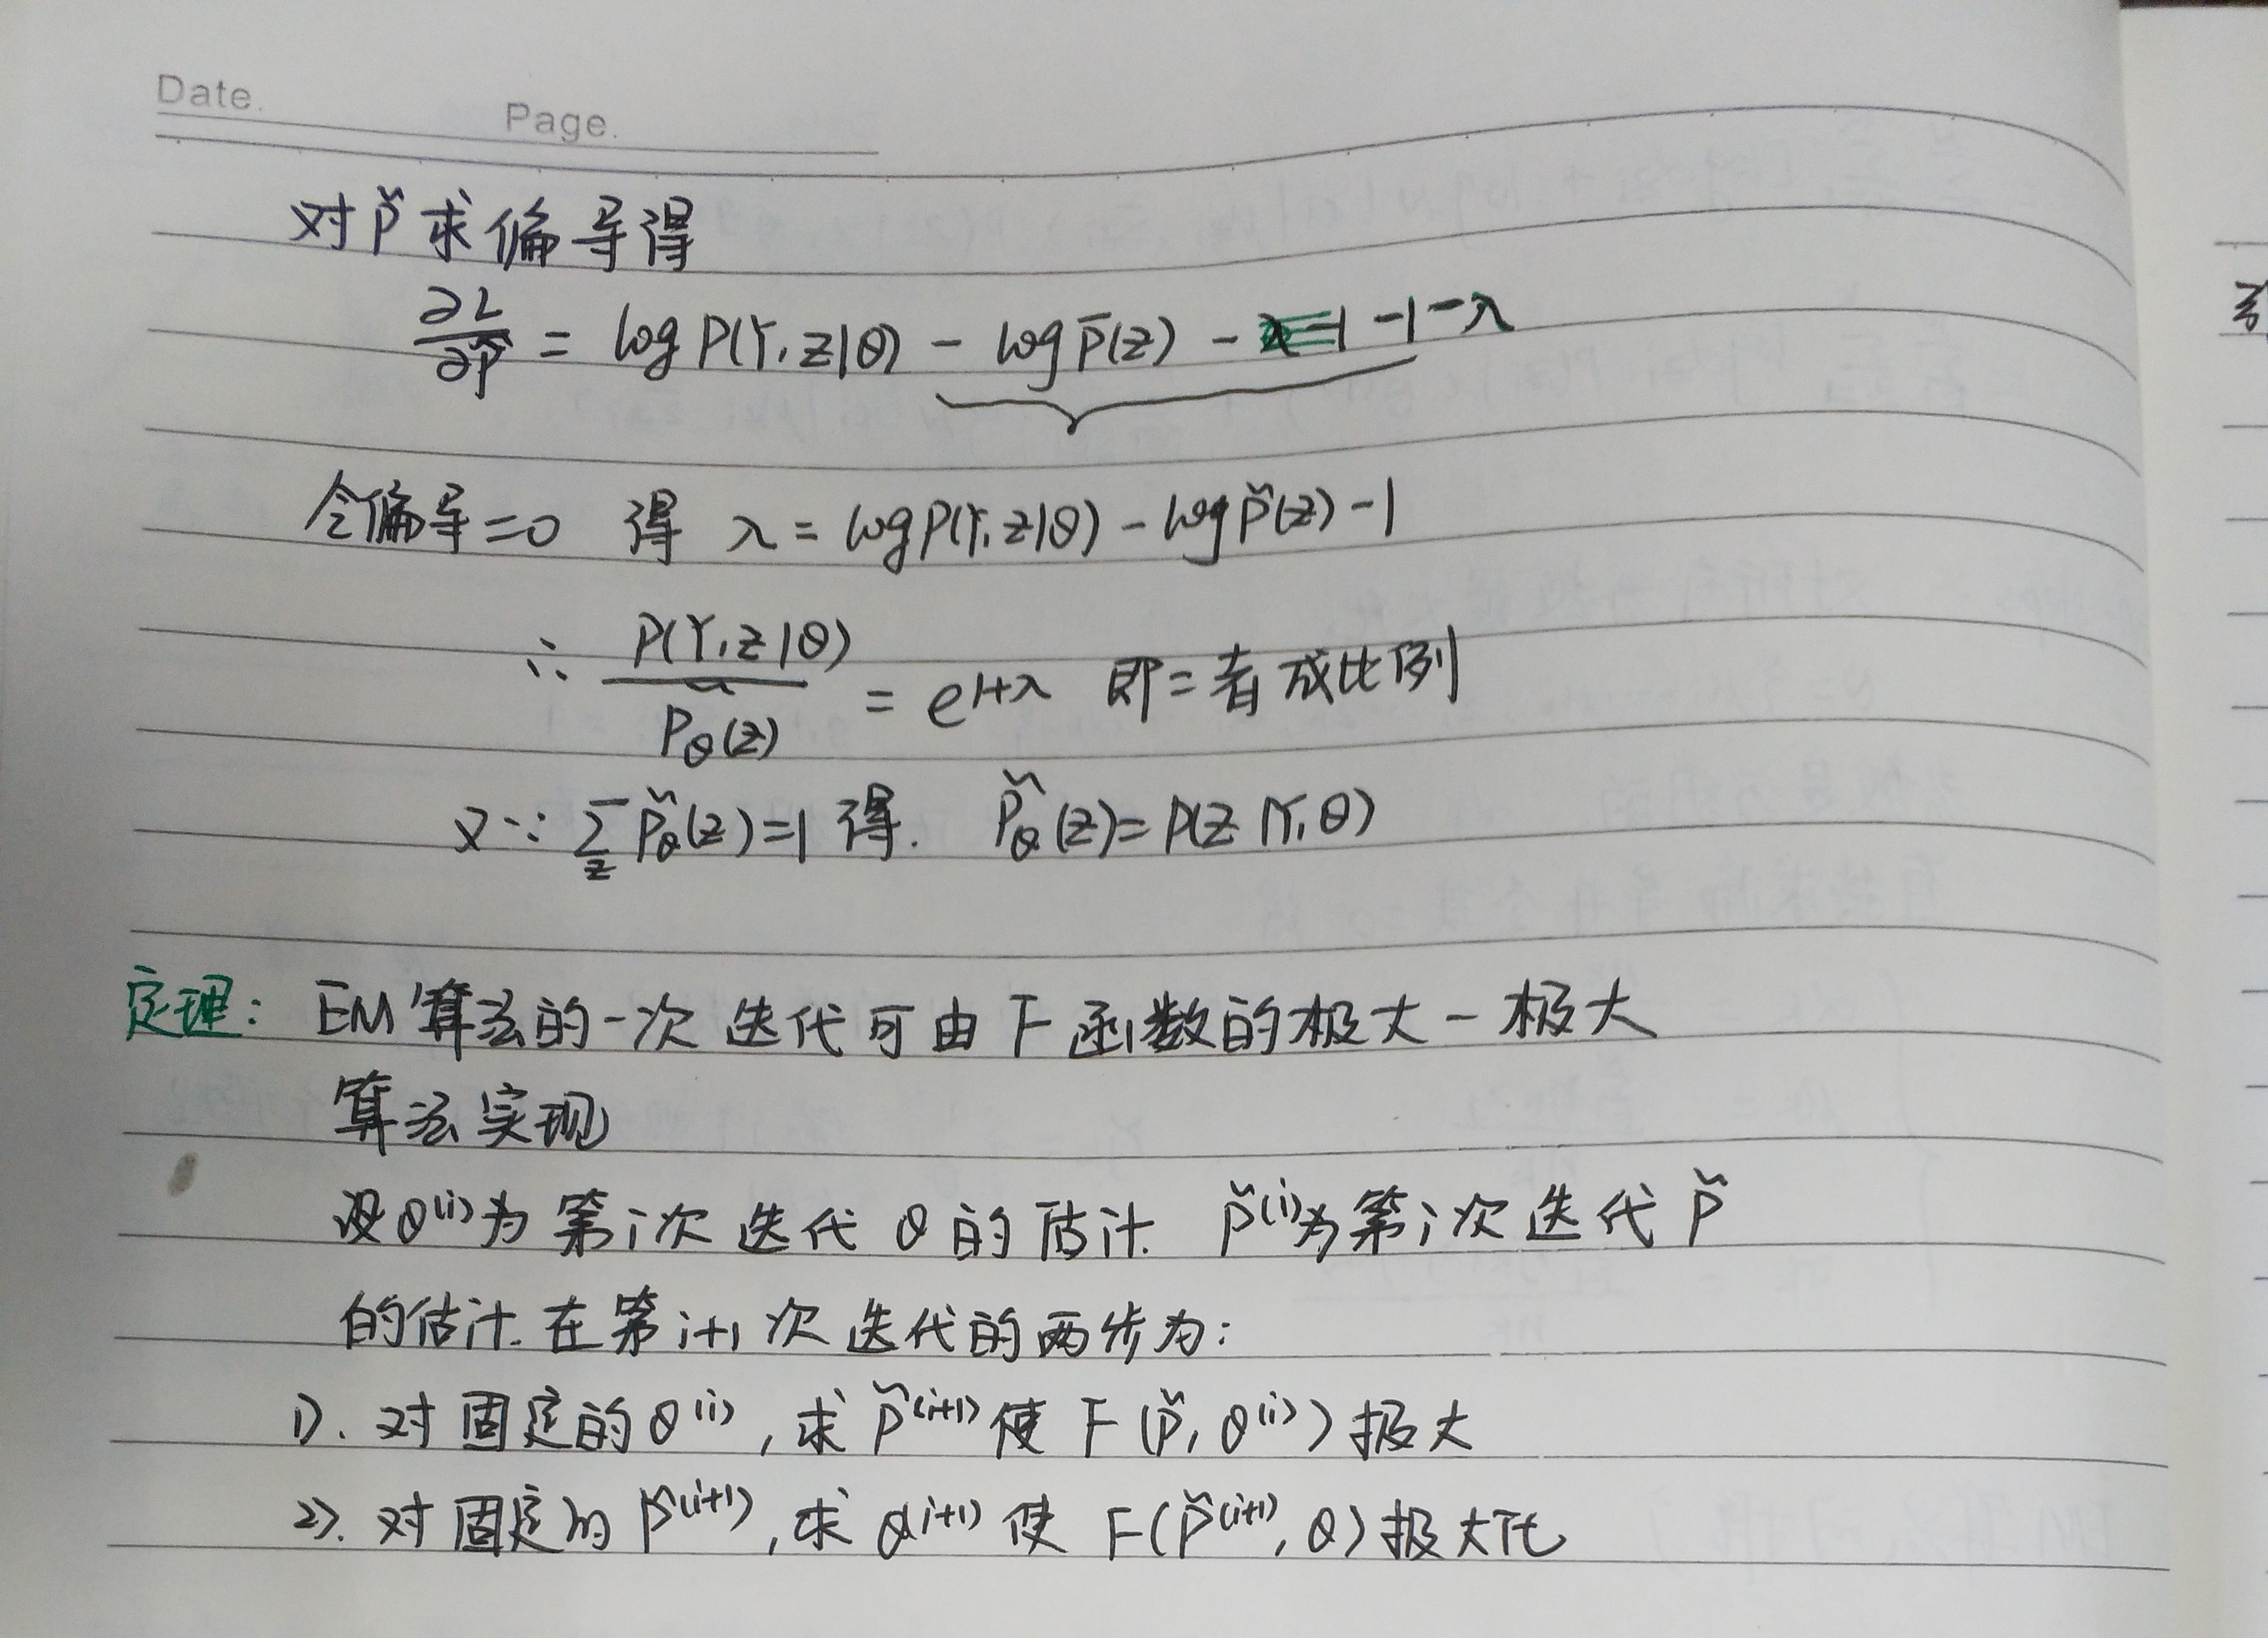 Date.
Page.
对 P̃ 求偏导得
∂L/∂P̃ = log P(Y,Z|θ) - log P̄(z) - 1 - λ
令偏导=0 得 λ = log P(Y,Z|θ) - log P̃(z) - 1
∴ P(Y,Z|θ)/P̃_θ(z) = e^{1+λ} 即二者成比例
又∵ ∑_z P̃_θ(z)=1 得. P̃_θ(z) = P(Z|Y,θ)
定理: EM算法的一次迭代可由F函数的极大-极大
算法实现
设θ^(i)为第i次迭代θ的估计. P̃^(i)为第i次迭代P̃
的估计.在第i+1次迭代的两步为:
1). 对固定的θ^(i),求P̃^(i+1)使F(P̃,θ^(i))极大
2). 对固定的P̃^(i+1),求θ^(i+1)使F(P̃^(i+1),θ)极大化